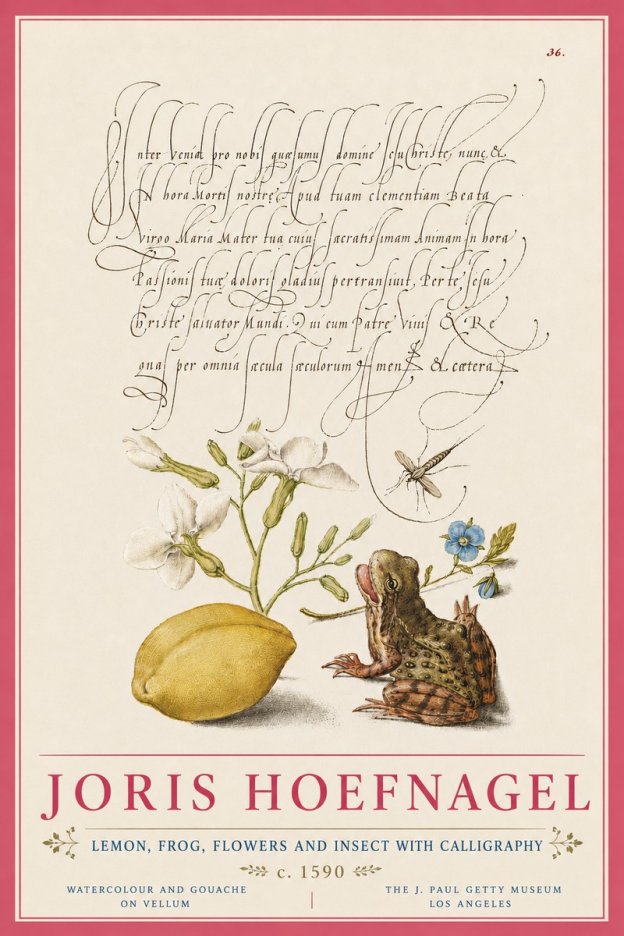 36.
nter Veniā pro nobis quæsumus domine esu Christe, nunc, &
N hora Mortis nostrę Apud tuam clementiam Beata
Virgo Maria Mater tua cuius sacratissimam Animam In hora
Passionis tuæ doloris gladius pertransiuit, Per te Iesu
Christe saluator Mundi. Qui cum Patre Viuis & Re
gnas per omnia sæcula sæculorum Amen & cætera
JORIS HOEFNAGEL
LEMON, FROG, FLOWERS AND INSECT WITH CALLIGRAPHY
c. 1590
WATERCOLOUR AND GOUACHE
ON VELLUM
THE J. PAUL GETTY MUSEUM
LOS ANGELES